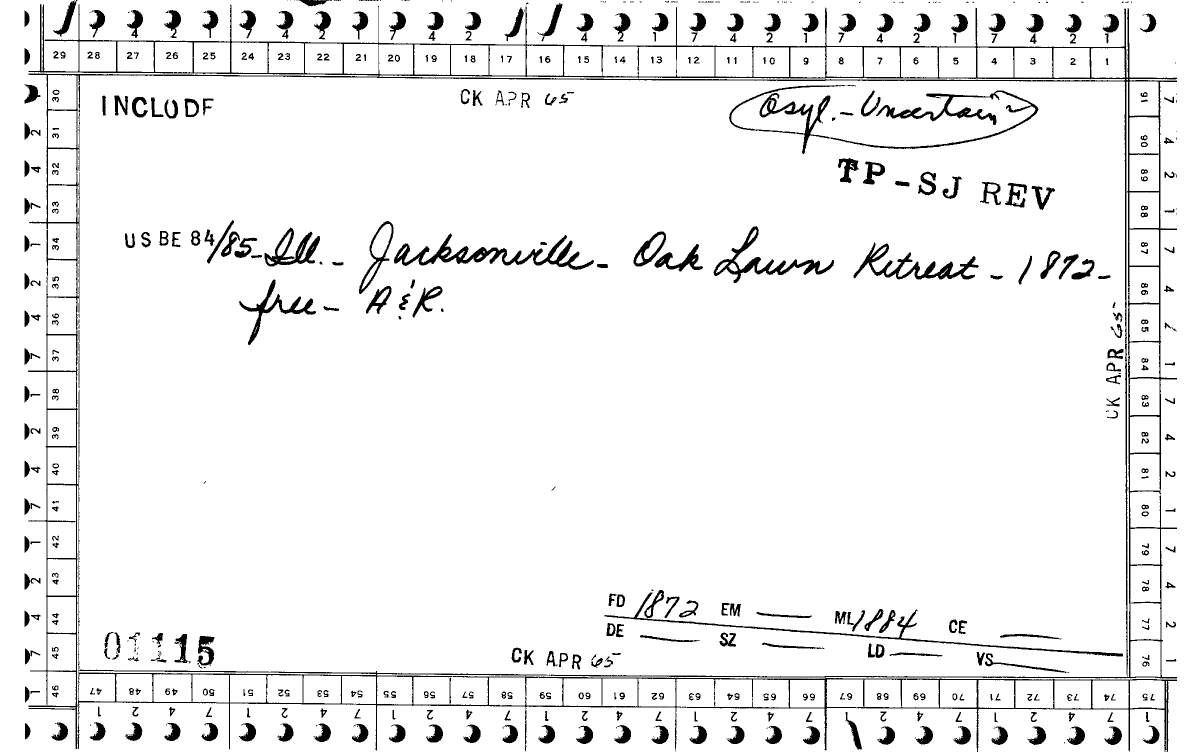 7 4 2 1 7 4 2 1 7 4 2 4 2 1 7 4 2 1 7 4 2 1 7 4 2 1
29 28 27 26 25 24 23 22 21 20 19 18 17 16 15 14 13 12 11 10 9 8 7 6 5 4 3 2 1
INCLUDE
CK APR 65
Asyl. - Uncertain
TP-SJ REV
US BE 84/85- Ill. - Jacksonville - Oak Lawn Retreat - 1872 -
free - A & R.
CK APR 65
FD 1872 EM ML 1884 CE
DE SZ LD VS
01115
CK APR 65
30 31 32 33 34 35 36 37 38 39 40 41 42 43 44 45 46
2 4 7 1 2 4 7 1 2 4 7 1 2 4 7 1
91 90 89 88 87 86 85 84 83 82 81 80 79 78 77 76
7 4 2 1 7 4 2 1 7 4 2 1 7 4 2 1
47 48 49 50 51 52 53 54 55 56 57 58 59 60 61 62 63 64 65 66 67 68 69 70 71 72 73 74 75
1 2 4 7 1 2 4 7 1 2 4 7 1 2 4 7 1 2 4 7 2 4 7 1 2 4 7 1